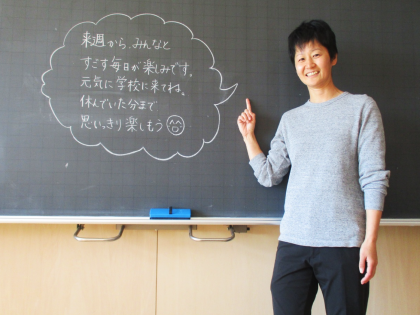 来週から、みんなと
すごす毎日が楽しみです。
元気に学校に来てね。
休んでいた分まで
思いっきり楽しもう